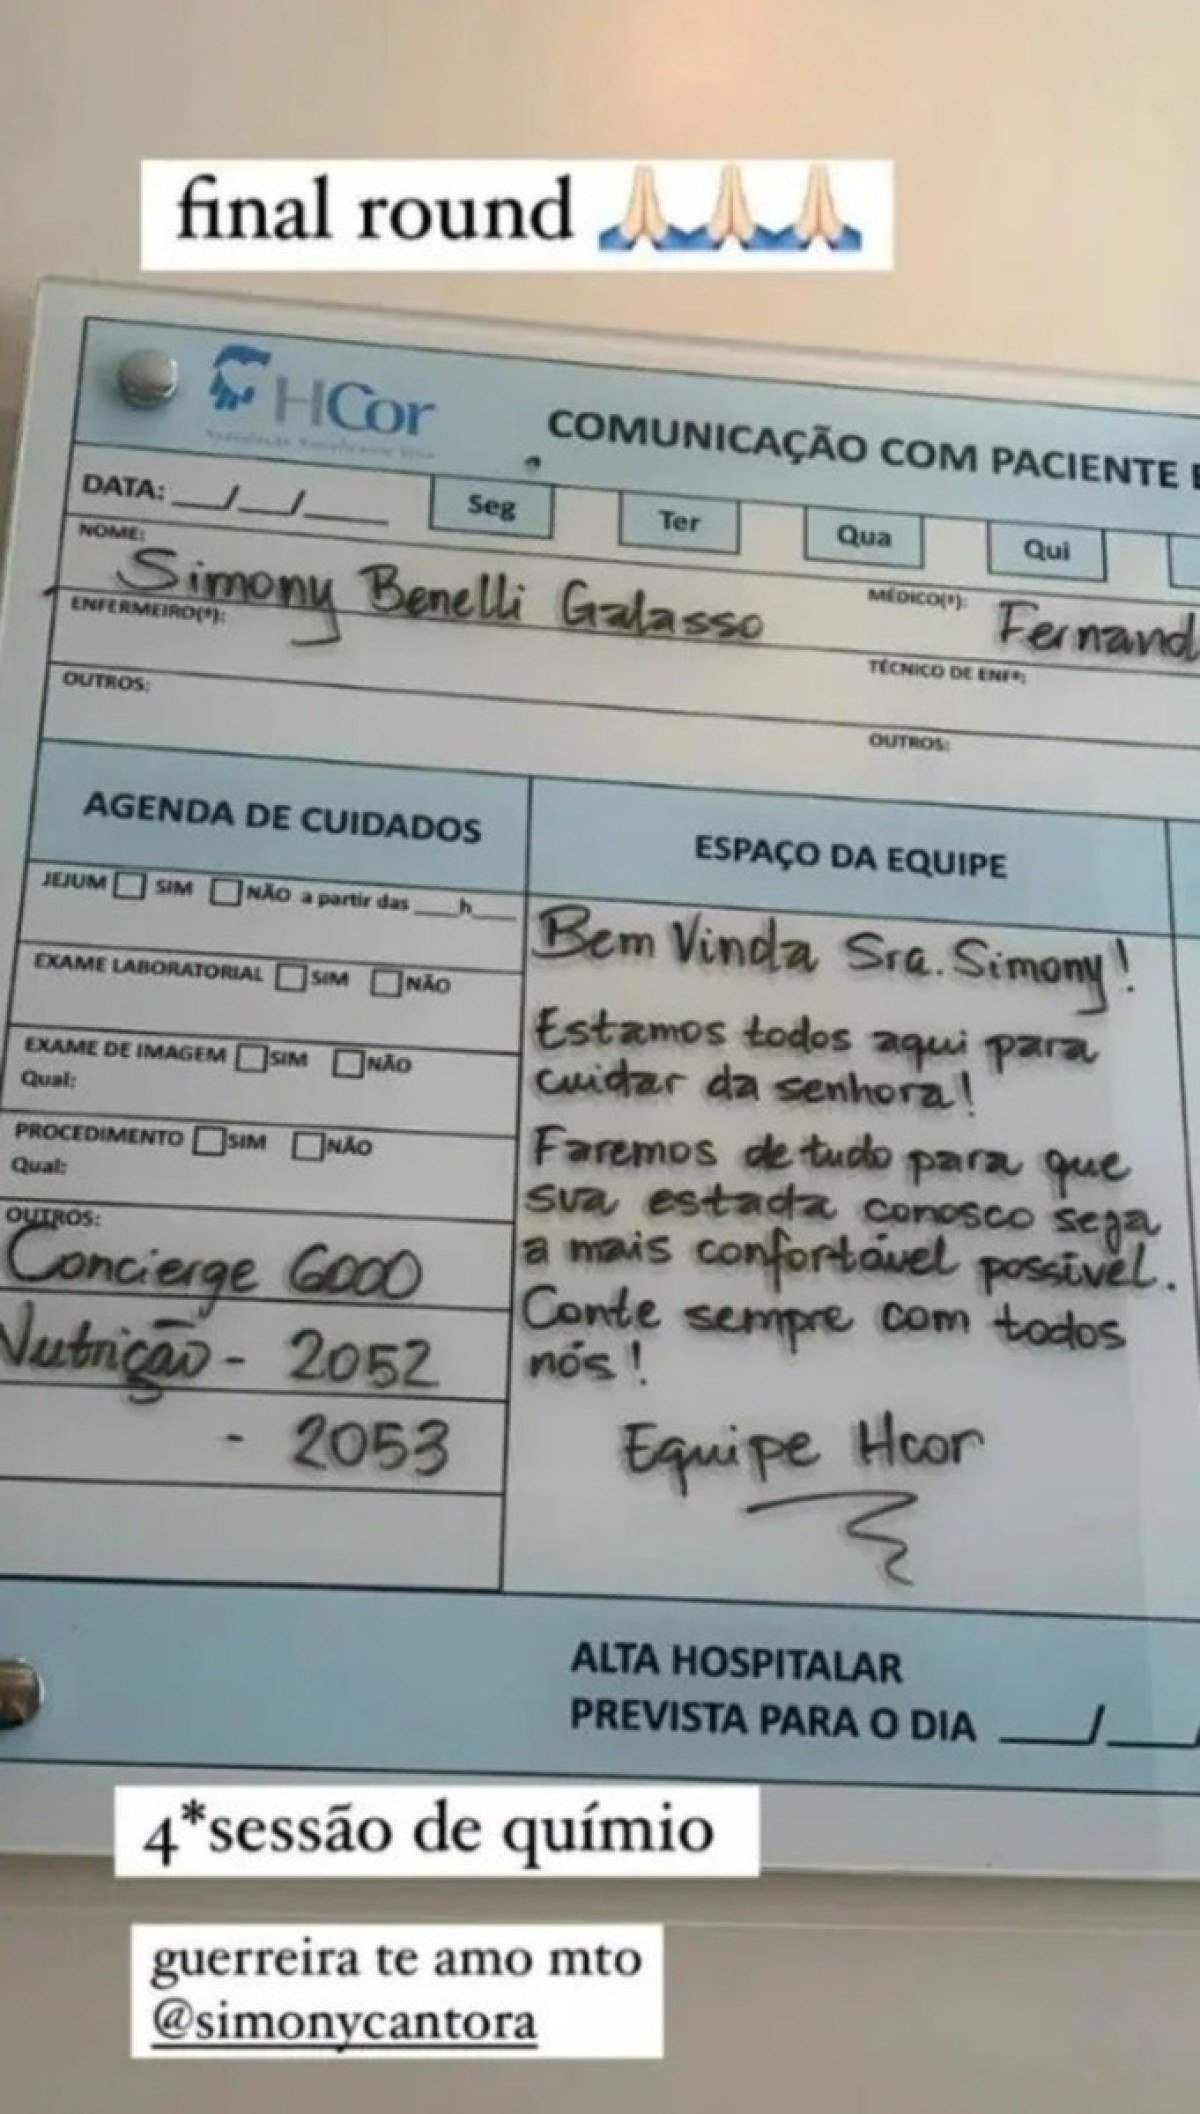 final round 🙏🏻🙏🏻🙏🏻
HCor
COMUNICAÇÃO COM PACIENTE E
DATA: __/__/____ Seg Ter Qua Qui
NOME: Simony Benelli Galasso
MÉDICO(ª): Fernand
ENFERMEIRO(ª):
TÉCNICO DE ENFª:
OUTROS:
OUTROS:
AGENDA DE CUIDADOS
JEJUM ☐ SIM ☐ NÃO a partir das ___h___
EXAME LABORATORIAL ☐ SIM ☐ NÃO
EXAME DE IMAGEM ☐ SIM ☐ NÃO
Qual:
PROCEDIMENTO ☐ SIM ☐ NÃO
Qual:
OUTROS:
Concierge 6000
Nutrição - 2052
- 2053
ESPAÇO DA EQUIPE
Bem Vinda Sra. Simony!
Estamos todos aqui para
cuidar da senhora!
Faremos de tudo para que
sua estada conosco seja
a mais confortável possível.
Conte sempre com todos
nós!
Equipe Hcor
ALTA HOSPITALAR
PREVISTA PARA O DIA ____/____/
4*sessão de químio
guerreira te amo mto
@simonycantora